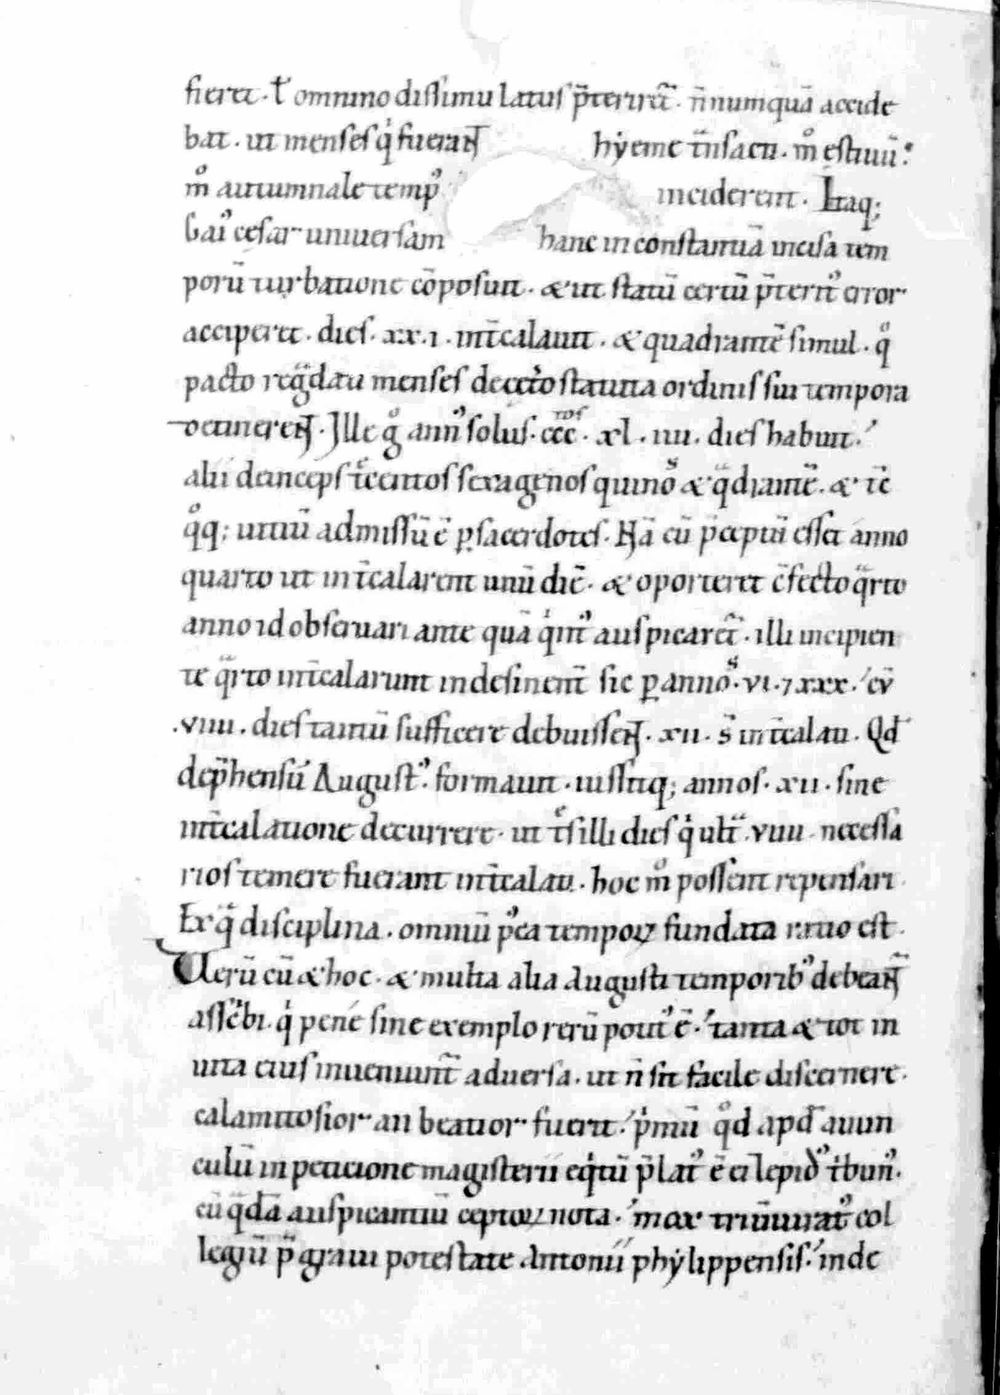 fieret · ł omnino dissimulatus p̄teriret᷑ · n̄numquā accide
bat · ut menses q̇ fuerant hyeme t̄nsacti · m̊ estiuū :
m̊ autumnale temp᾽ inciderent · Itaq;
Gai᾽ cesar uniuersam hanc inconstantiā incisa tem
porū turbatione cōposuit · & ut statū certū p̄terit᾽ error
acciperet · dies · xx · i · int̄calauit · & quadrantē simul · q̊
pacto regᷓdati menses de cet᾽o statuta ordinis sui tempora
detinerent · Ille g̊ ann᾽ solus · ccc · xl · iiii · dies habuit ·
alii deinceps t᾽centos sexagenos quinos & qᷓdrantē · & tc̄
q̊q; uitiū admissū ē ꝑ sacerdotes · Nā cū p̄ceptū esset anno
quarto ut int̄calarent unū diē · & oporteret ꝯfecto qᷓrto
anno id obseruari ante quā q̇nt᾽ auspicaret᷑ · illi incipien
te qᷓrto int̄calarunt n desinente sic ꝑ annos · vi · ⁊ xxx · cū
· viiii · dies tantū sufficere debuissent · xii · s̄ int̄calati · Qd̄
dep̄hensū August᾽ · formauit · iussitq; annos · xii · sine
int̄calatione decurrere · ut t᾽s illi dies q̇ ultᷓ · viiii · necessa
rios temere fuerant int̄calati · hoc m̊ possent repensari ·
Ex qᷓ disciplina · omniū p᾽ea tempoꝝ fundata ratio est ·
Verū cū & hoc · & multa alia Augusti temporib᾽ debeant᷑
ass᾽c̄bi · q̇ pene sine exemplo rerū potit᾽ ē · tanta & tot in
uita eius inueniunt᷑ aduersa · ut n̄ sit facile discernere ·
calamitosior an beatior fuerit · ṗmū q̊d apd̄ auun
culū in peticione magisterii eq̇tū p̄lat᾽ ē ei lepid᾽ t̄bun᾽ ·
cū qᷓdā auspicantiū ceptoꝝ nota · mox triūuirat᾽ col
legiū p̄graui potestate Antonii phylippensis · inde